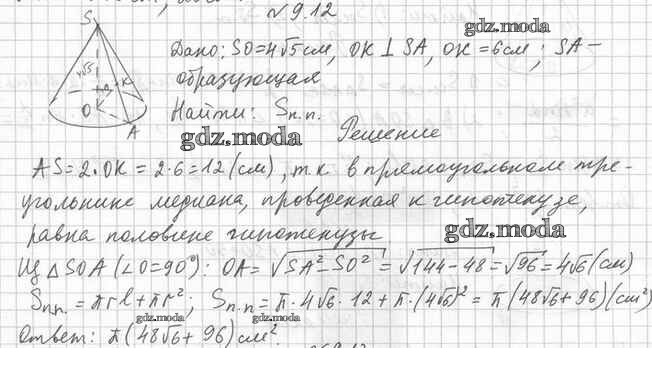 №9.12
S
gdz.moda
Дано: SO=4√5см, OK⊥SA, OK=6см; SA –
образующая
4√5
6
K
O
A
Найти: Sп.п.
gdz.moda
Решение
AS=2·OK=2·6=12(см), т.к в прямоугольном тре-
угольнике медиана, проведенная к гипотенузе,
равна половине гипотенузы
gdz.moda
Из △SOA (∠O=90°): OA=√SA²–SO²=√144–48=√96=4√6(см)
Sп.п.=πrl+πr²; Sп.п.=π·4√6·12+π·(4√6)²=π(48√6+96)(см²)
gdz.moda
gdz.moda
Ответ: π(48√6+96)см².